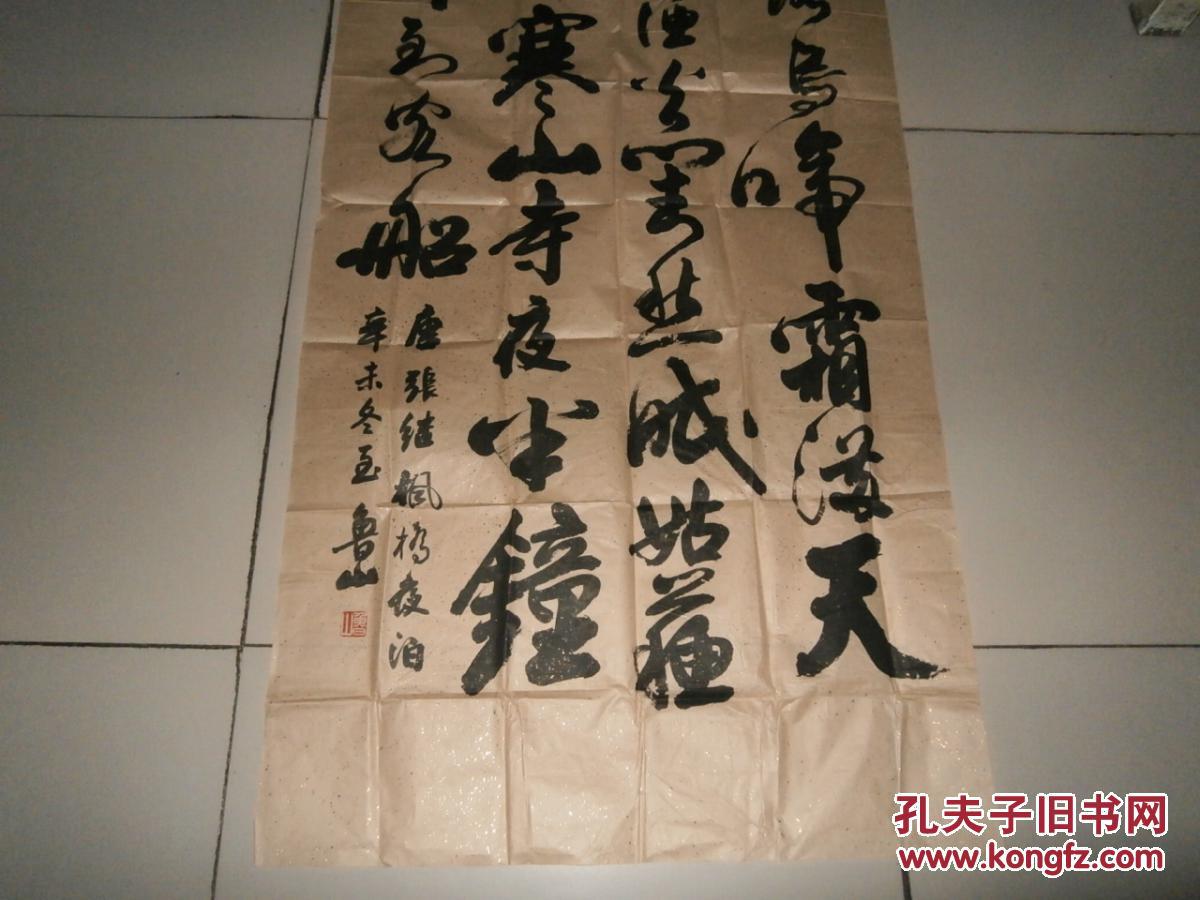 烏啼霜滿天
渔火對愁眠姑蘇
寒山寺夜半鐘
到客船
唐張继楓橋夜泊
辛未冬至魯山
孔夫子旧书网
www.kongfz.com